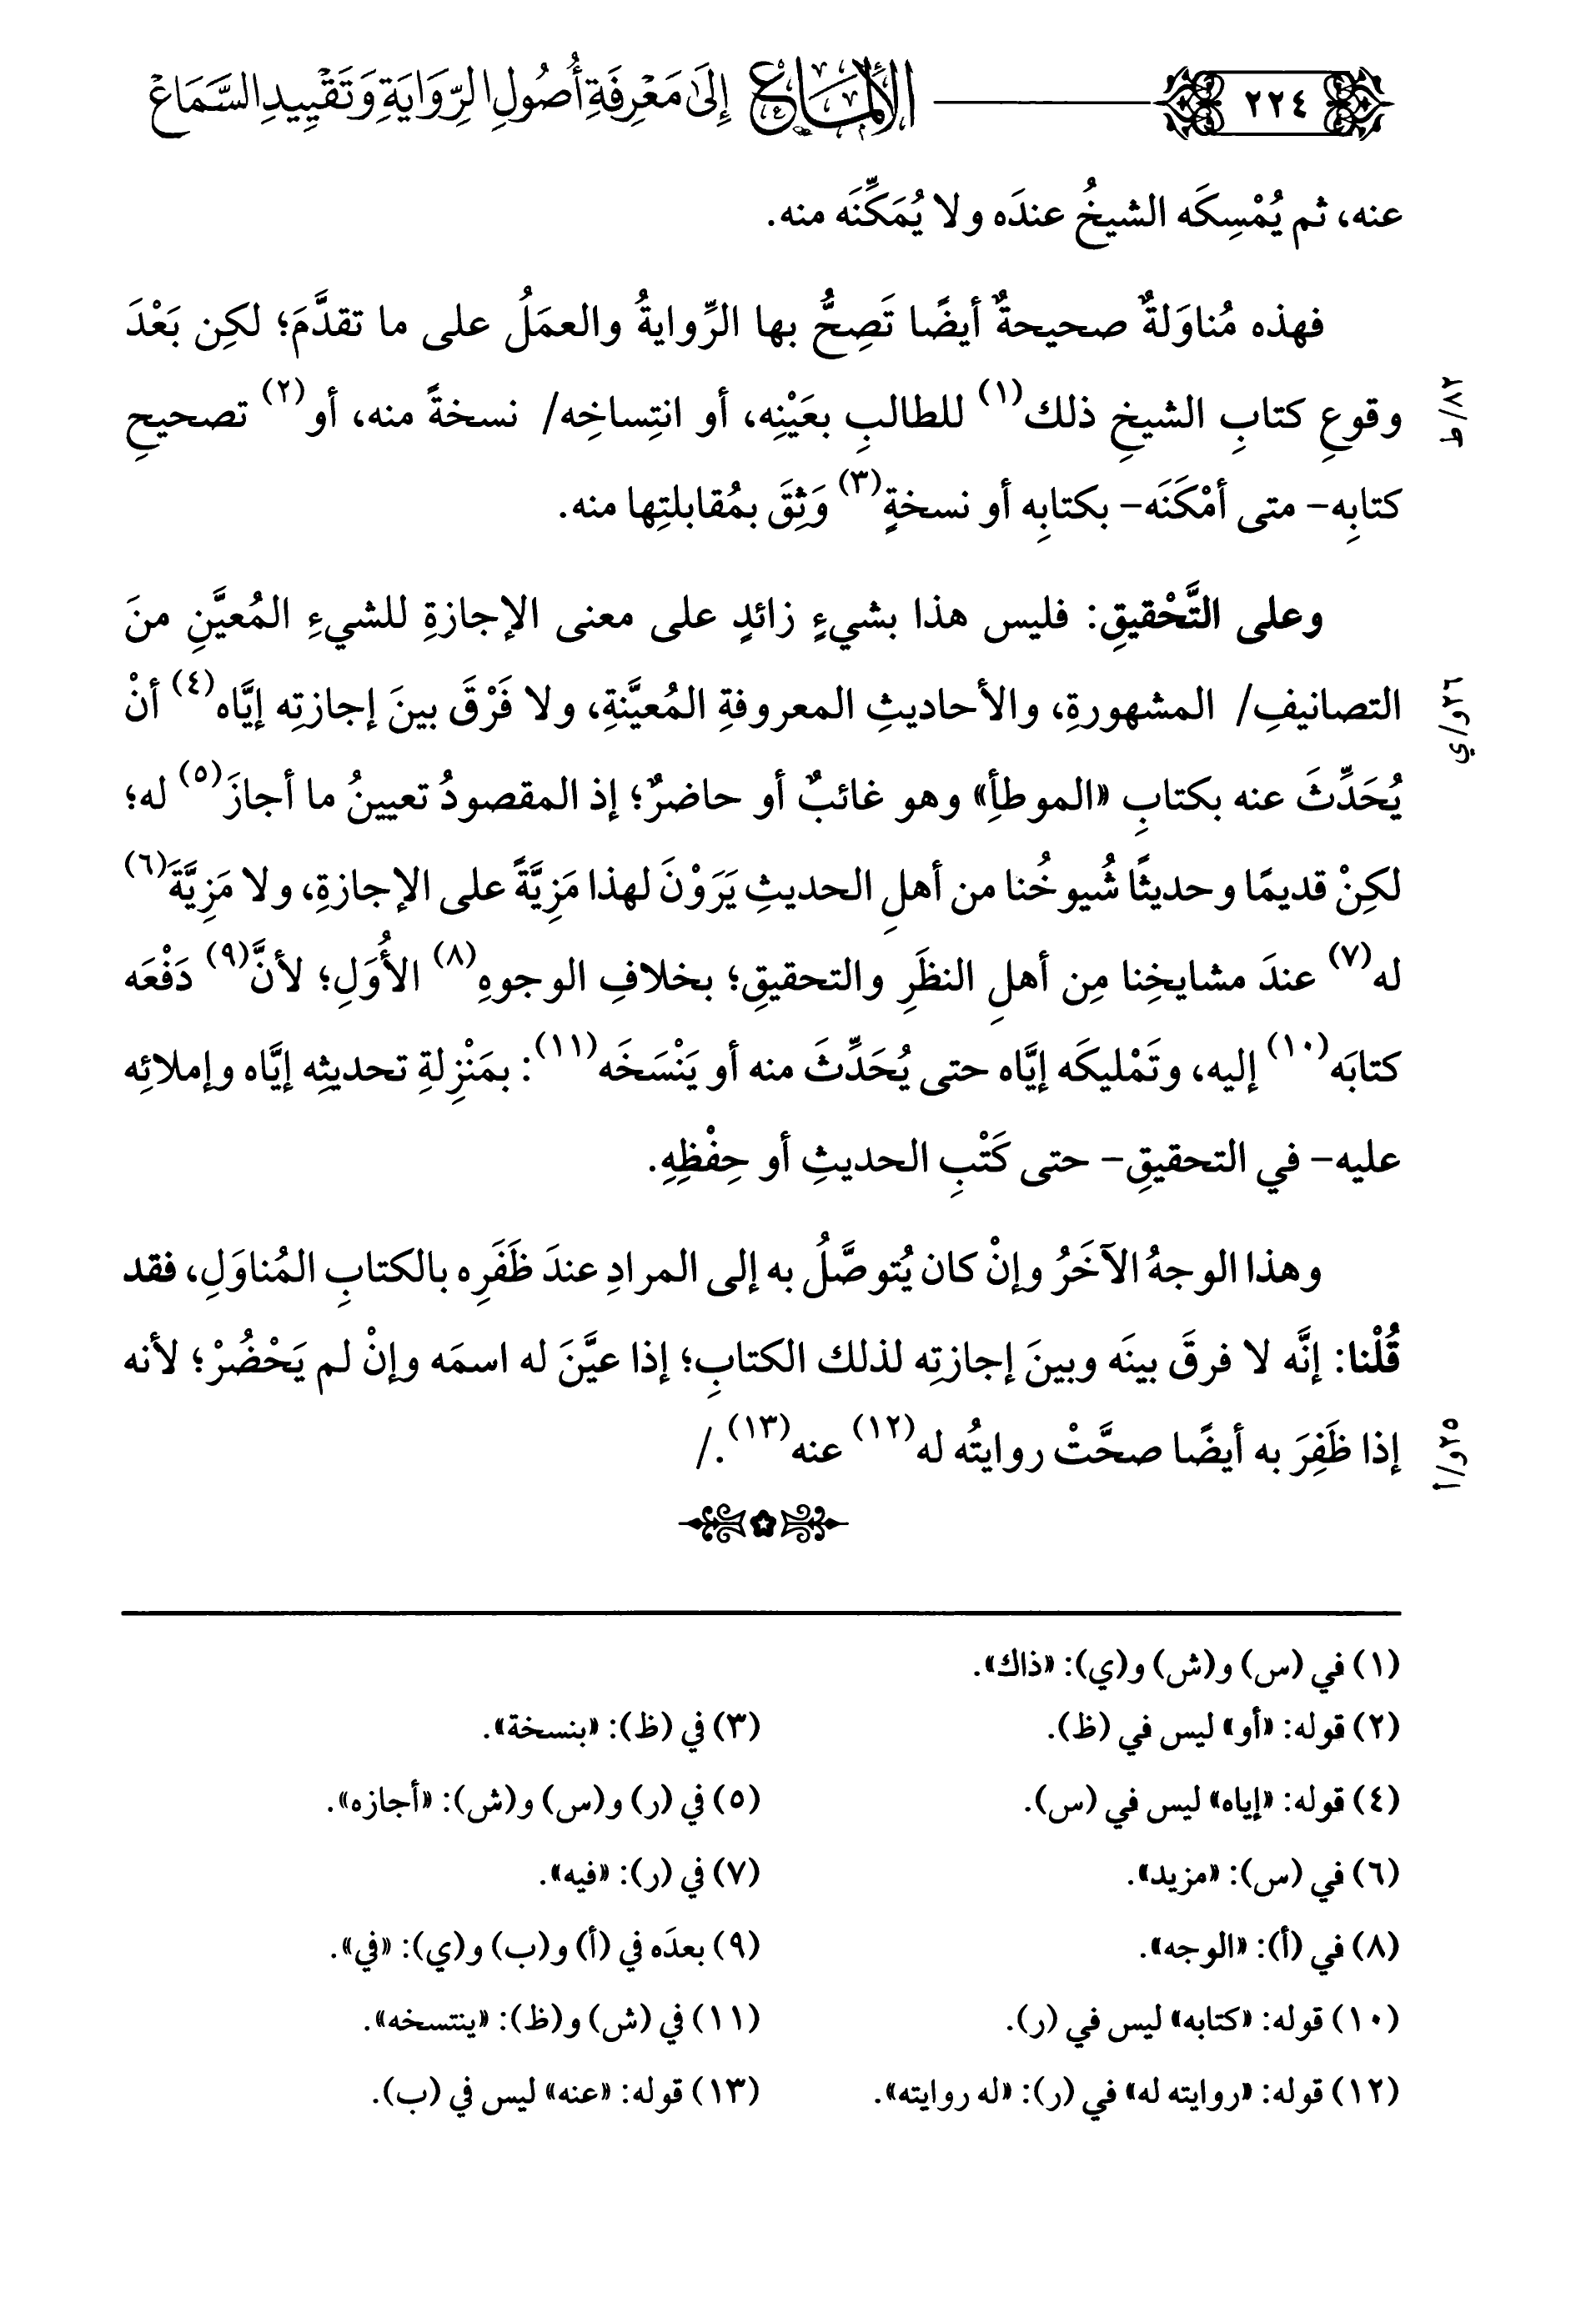 ٢٢٤
الإلماع إلى معرفة أصول الرواية وتقييد السماع
عنه، ثم يُمْسِكَه الشيخُ عندَه ولا يُمَكِّنَه منه.
فهذه مُناوَلةٌ صحيحةٌ أيضًا تَصِحُّ بها الرِّوايةُ والعمَلُ على ما تقدَّمَ؛ لكِن بَعْدَ
وقوعِ كتابِ الشيخِ ذلك(١) للطالبِ بعَيْنِه، أو انتِساخِه/ نسخةً منه، أو(٢) تصحيحِ
كتابِه- متى أمْكَنَه- بكتابِه أو نسخةٍ(٣) وَثِقَ بمُقابلتِها منه.
وعلى التَّحْقيقِ: فليس هذا بشيءٍ زائدٍ على معنى الإجازةِ للشيءِ المُعيَّنِ منَ
التصانيفِ/ المشهورةِ، والأحاديثِ المعروفةِ المُعيَّنةِ، ولا فَرْقَ بينَ إجازتِه إيَّاه(٤) أنْ
يُحَدِّثَ عنه بكتابِ «الموطأِ» وهو غائبٌ أو حاضرٌ؛ إذ المقصودُ تعيينُ ما أجازَ(٥) له؛
لكِنْ قديمًا وحديثًا شُيوخُنا من أهلِ الحديثِ يَرَوْنَ لهذا مَزِيَّةً على الإجازةِ، ولا مَزِيَّةَ(٦)
له(٧) عندَ مشايخِنا مِن أهلِ النظَرِ والتحقيقِ؛ بخلافِ الوجوهِ(٨) الأُوَلِ؛ لأنَّ(٩) دَفْعَه
كتابَه(١٠) إليه، وتَمْليكَه إيَّاه حتى يُحَدِّثَ منه أو يَنْسَخَه(١١): بمَنْزِلةِ تحديثِه إيَّاه وإملائِه
عليه- في التحقيقِ- حتى كَتْبِ الحديثِ أو حِفْظِهِ.
وهذا الوجهُ الآخَرُ وإنْ كان يُتوصَّلُ به إلى المرادِ عندَ ظَفَرِه بالكتابِ المُناوَلِ، فقد
قُلْنا: إنَّه لا فرقَ بينَه وبينَ إجازتِه لذلك الكتابِ؛ إذا عيَّنَ له اسمَه وإنْ لم يَحْضُرْ؛ لأنه
إذا ظَفِرَ به أيضًا صحَّتْ روايتُه له(١٢) عنه(١٣)./
٨٢/ظ
٢٦و/ي
٢٥و/أ
(١) في (س) و(ش) و(ي): «ذاك».
(٢) قوله: «أو» ليس في (ظ).
(٣) في (ظ): «بنسخة».
(٤) قوله: «إياه» ليس في (س).
(٥) في (ر) و(س) و(ش): «أجازه».
(٦) في (س): «مزيد».
(٧) في (ر): «فيه».
(٨) في (أ): «الوجه».
(٩) بعدَه في (أ) و(ب) و(ي): «في».
(١٠) قوله: «كتابه» ليس في (ر).
(١١) في (ش) و(ظ): «ينتسخه».
(١٢) قوله: «روايته له» في (ر): «له روايته».
(١٣) قوله: «عنه» ليس في (ب).